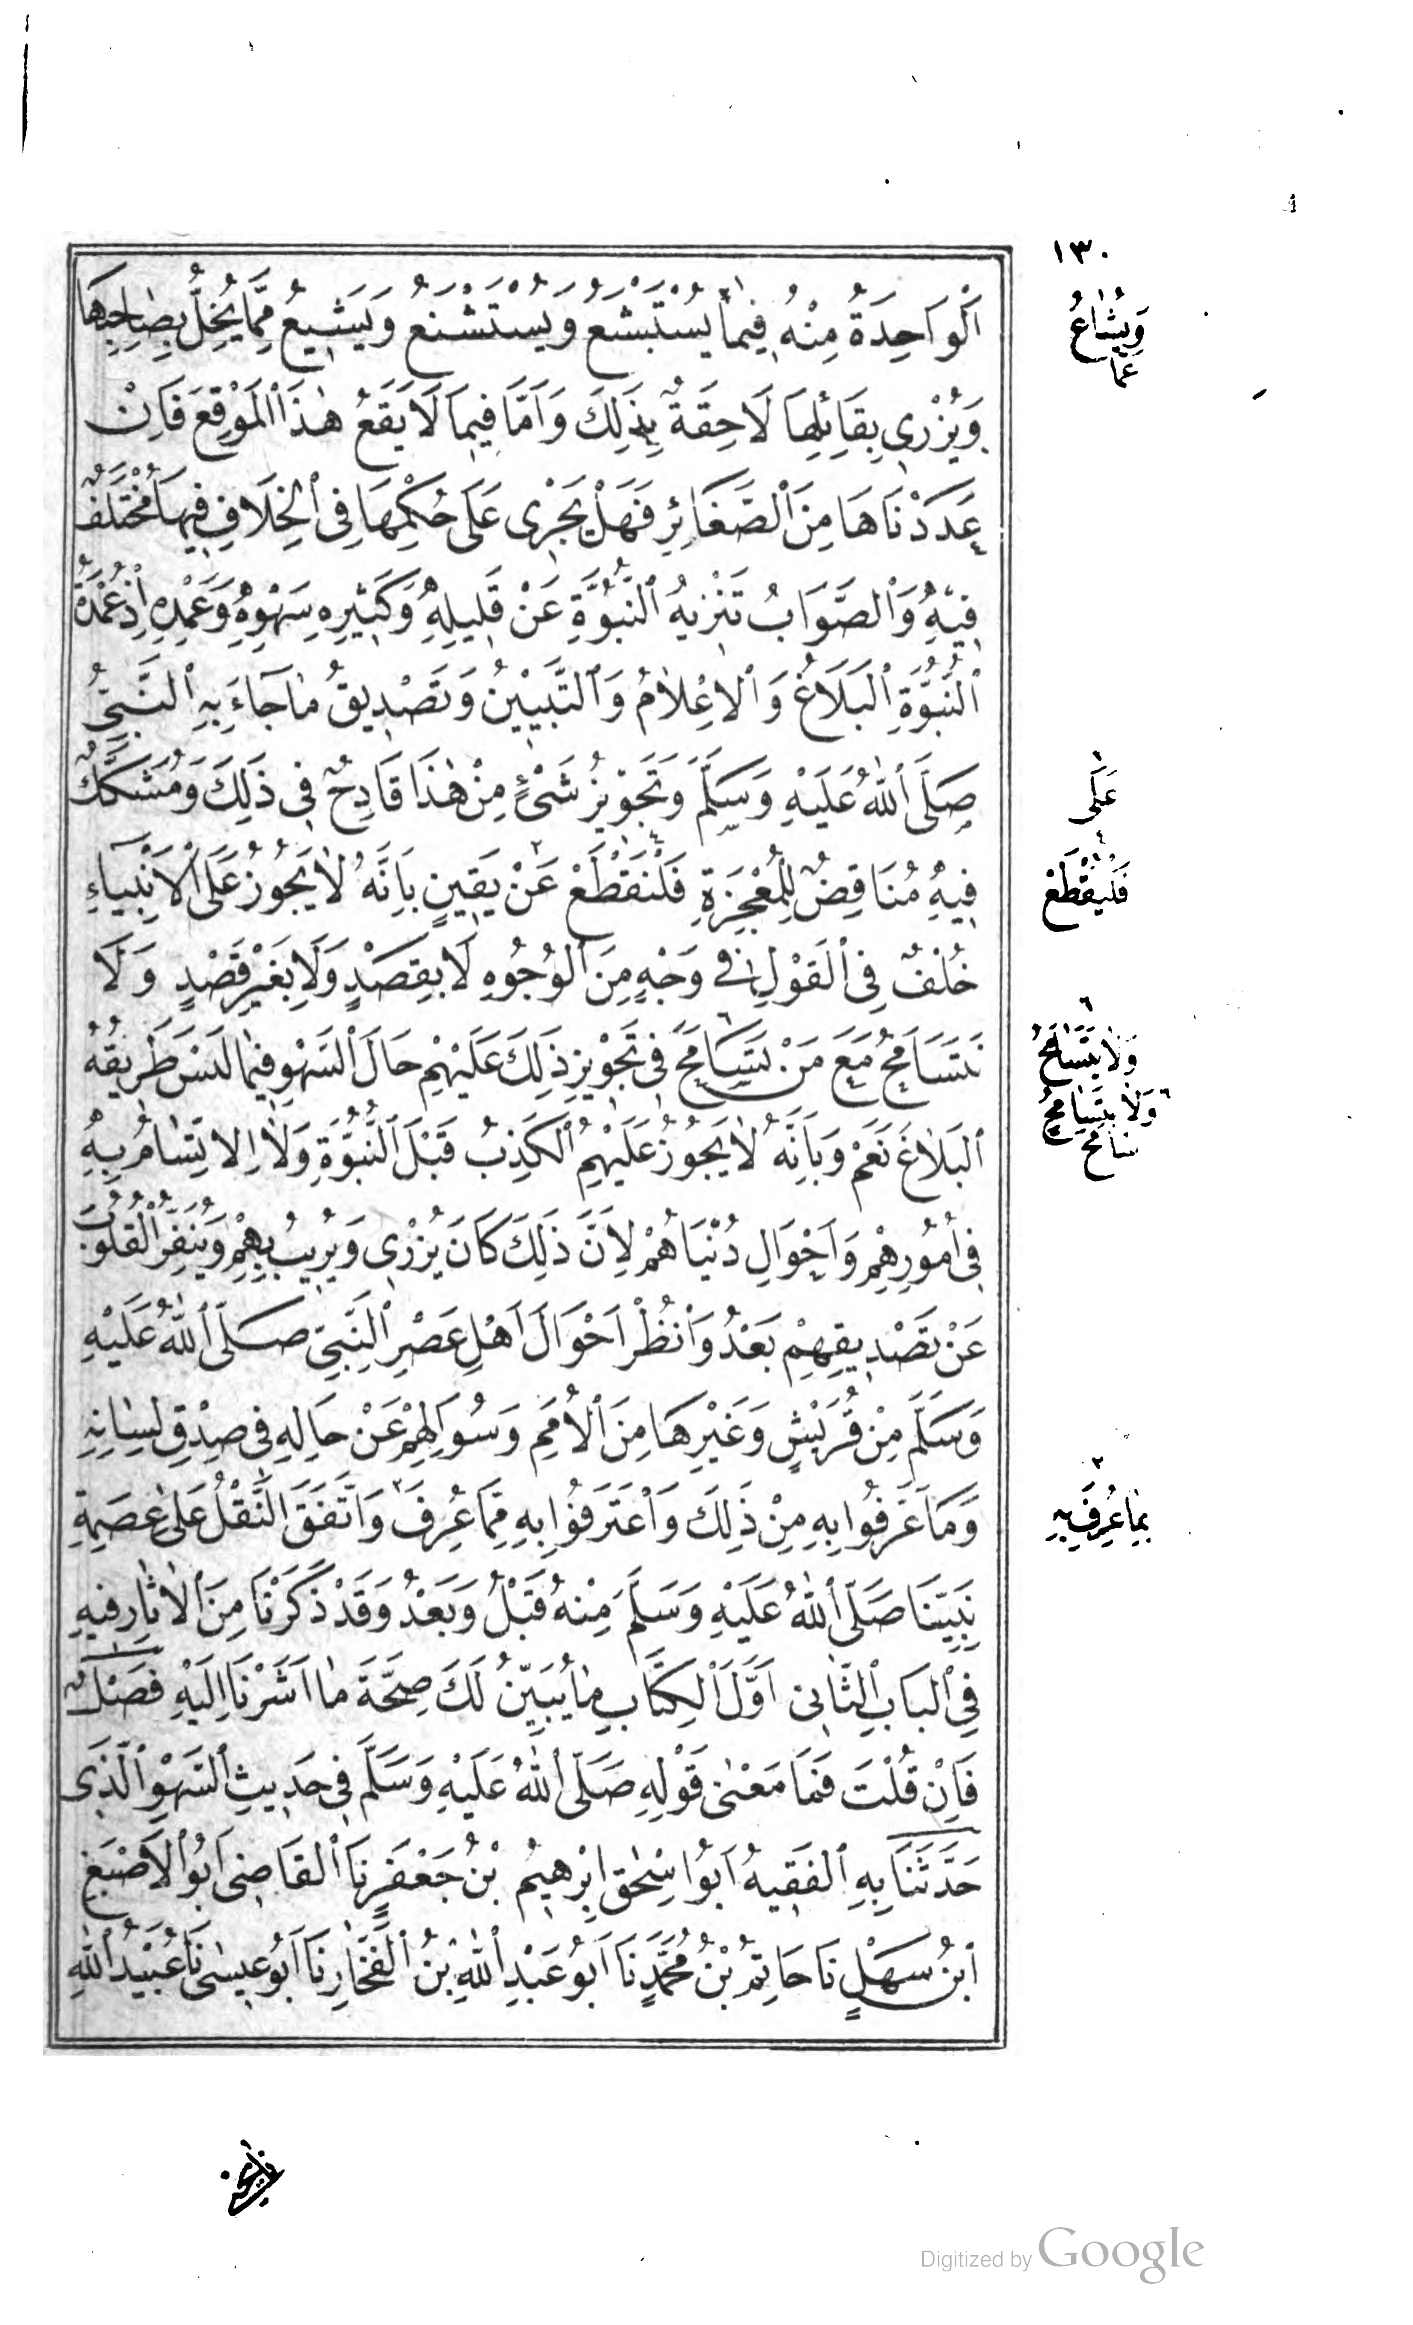 ١٣٠
اَلْوَاحِدَةُ مِنْهُ فِيمَا يُسْتَبْشَعُ وَيُسْتَشْنَعُ وَيَشِيعُ مِمَّا يُخِلُّ بِصَاحِبِهَا
وَيُزْرِي بِقَائِلِهَا لَاحِقَةٌ بِذَلِكَ وَاَمَّا فِيمَا لَا يَقَعُ هٰذَا الْمَوْقِعَ فَاِنْ
عَدَدْنَاهَا مِنَ الصَّغَائِرِ فَهَلْ يَجْرِي عَلَى حُكْمِهَا فِي الْخِلَافِ فِيهَا مُخْتَلَفٌ
فِيهِ وَالصَّوَابُ تَنْزِيهُ النُّبُوَّةِ عَنْ قَلِيلِهِ وَكَثِيرِهِ سَهْوِهِ وَعَمْدِهِ اِذْ عُمْدَةُ
النُّبُوَّةِ الْبَلَاغُ وَالْاِعْلَامُ وَالتَّبْيِينُ وَتَصْدِيقُ مَا جَاءَ بِهِ النَّبِيُّ
صَلَّى اللهُ عَلَيْهِ وَسَلَّمَ وَتَجْوِيزُ شَيْءٍ مِنْ هٰذَا قَادِحٌ فِي ذَلِكَ وَمُشَكِّكٌ
فِيهِ مُنَاقِضٌ لِلْمُعْجِزَةِ فَلْنَقْطَعْ عَنْ يَقِينٍ بِاَنَّهُ لَا يَجُوزُ عَلَى الْاَنْبِيَاءِ
خُلْفٌ فِي الْقَوْلِ فِي وَجْهٍ مِنَ الْوُجُوهِ لَا بِقَصْدٍ وَلَا بِغَيْرِ قَصْدٍ وَلَا
نَتَسَامَحُ مَعَ مَنْ تَسَامَحَ فِي تَجْوِيزِ ذَلِكَ عَلَيْهِمْ حَالَ السَّهْوِ فِيمَا لَيْسَ طَرِيقُهُ
الْبَلَاغَ نَعَمْ وَبِاَنَّهُ لَا يَجُوزُ عَلَيْهِمُ الْكَذِبُ قَبْلَ النُّبُوَّةِ وَلَا الْاِتِّسَامُ بِهِ
فِي اُمُورِهِمْ وَاَحْوَالِ دُنْيَاهُمْ لِاَنَّ ذَلِكَ كَانَ يُزْرِي وَيُرِيبُ بِهِمْ وَيُنَفِّرُ الْقُلُوبَ
عَنْ تَصْدِيقِهِمْ بَعْدُ وَانْظُرْ اَحْوَالَ اَهْلِ عَصْرِ النَّبِيِّ صَلَّى اللهُ عَلَيْهِ
وَسَلَّمَ مِنْ قُرَيْشٍ وَغَيْرِهَا مِنَ الْاُمَمِ وَسُوَالِهِمْ عَنْ حَالِهِ فِي صِدْقِ لِسَانِهِ
وَمَا عَرَفُوا بِهِ مِنْ ذَلِكَ وَاعْتَرَفُوا بِهِ مِمَّا عُرِفَ وَاتَّفَقَ النَّقْلُ عَلَى عِصْمَةِ
نَبِيِّنَا صَلَّى اللهُ عَلَيْهِ وَسَلَّمَ مِنْهُ قَبْلُ وَبَعْدُ وَقَدْ ذَكَرْنَا مِنَ الْاٰثَارِ فِيهِ
فِي الْبَابِ الثَّانِي اَوَّلَ الْكِتَابِ مَا يُبَيِّنُ لَكَ صِحَّةَ مَا اَشَرْنَا اِلَيْهِ فَصْلٌ
فَاِنْ قُلْتَ فَمَا مَعْنَى قَوْلِهِ صَلَّى اللهُ عَلَيْهِ وَسَلَّمَ فِي حَدِيثِ السَّهْوِ الَّذِي
حَدَّثَنَا بِهِ الْفَقِيهُ اَبُو اِسْحٰقَ اِبْرٰهِيمُ بْنُ جَعْفَرٍ نَا الْقَاضِي اَبُو الْاَصْبَغِ
ابْنُ سَهْلٍ نَا حَاتِمُ بْنُ مُحَمَّدٍ نَا اَبُو عَبْدِ اللهِ بْنُ الْفَخَّارِ نَا اَبُو عِيسٰى نَا عُبَيْدُ اللهِ
وَيُشَاعُ
عَمَّا
عَلَى
فَلْيُقْطَعْ
وَلَا يُتَسَامَحُ
وَلَا يَتَسَامَحُ
سَامَحَ
بِمَا عُرِفَ بِهِ
Digitized by Google